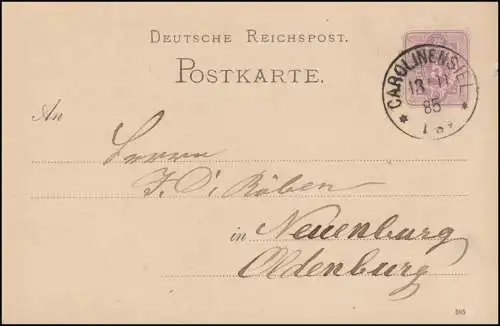 DEUTSCHE REICHSPOST.
POSTKARTE.
* CAROLINENSIEL *
85
An
Herrn
J. D. Röben
in Neuenburg
Oldenburg